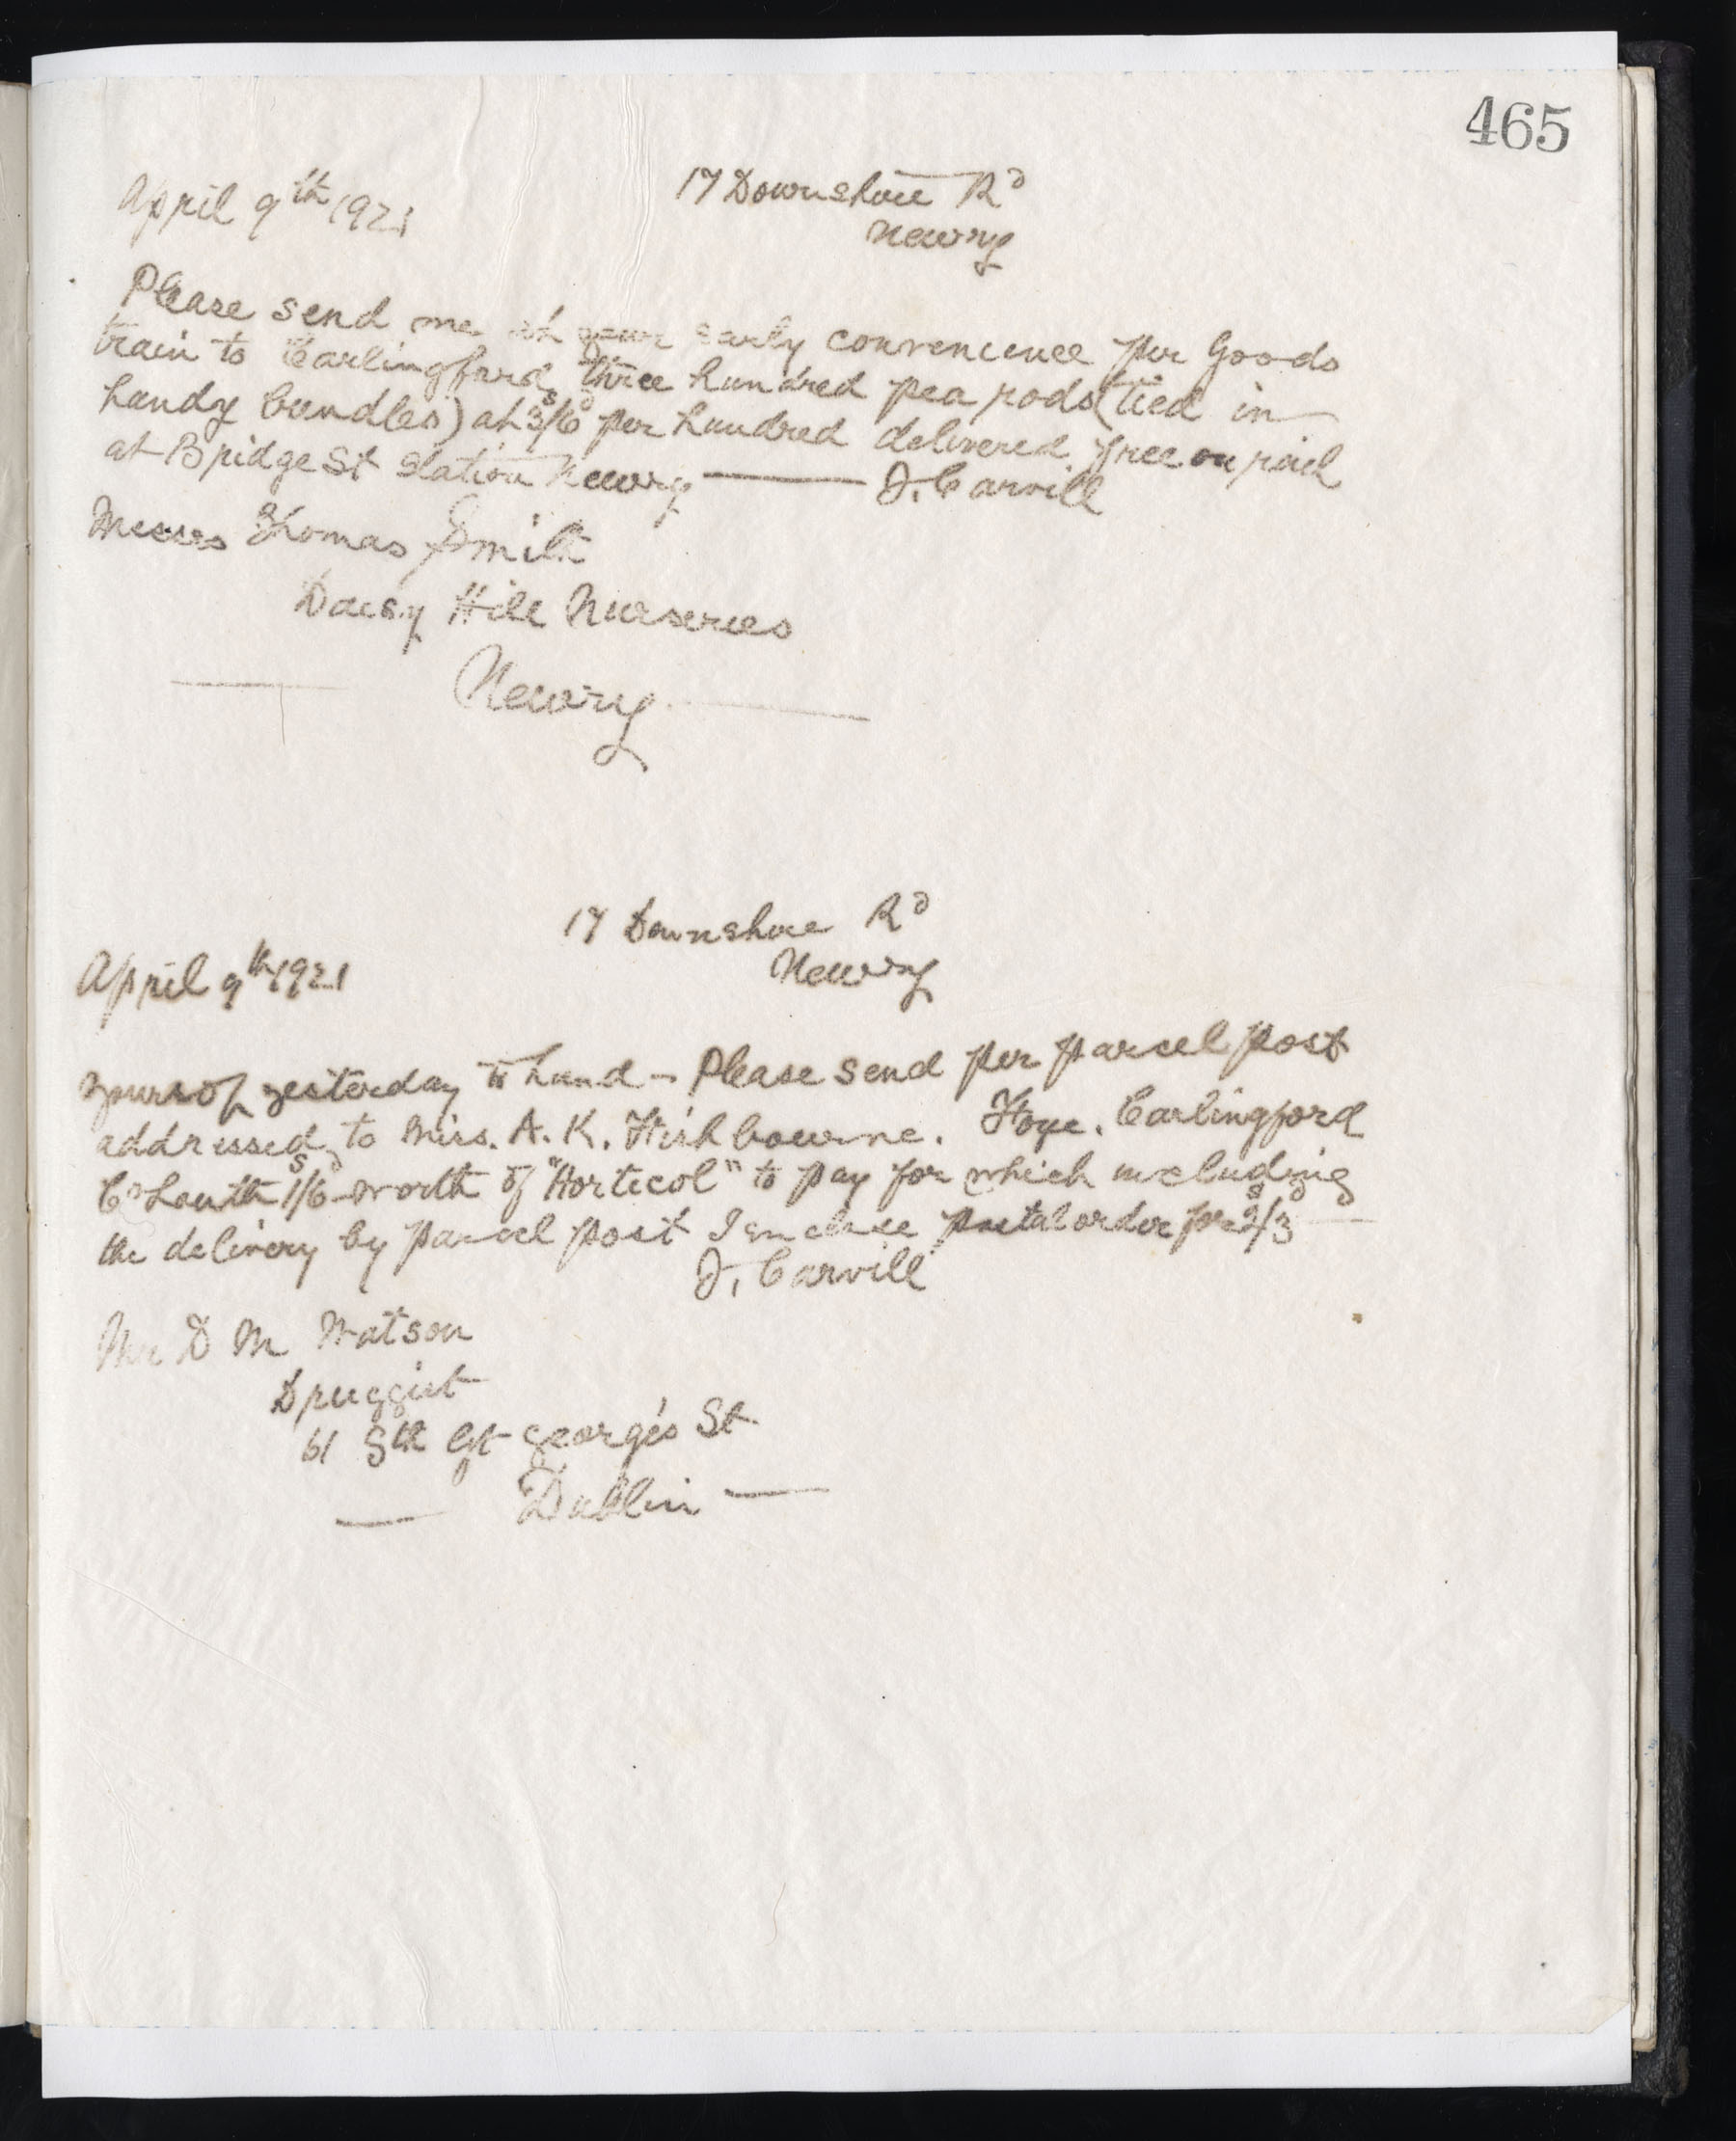 465
17 Downshire Rd
Newry
April 9th 1921
Please send me at your early convenience per Goods
train to Carlingford, three hundred pea rods (tied in
handy bundles) at 3s/6d per hundred delivered free on rail
at Bridge St Station Newry — J. Carvill
Messrs Thomas Smith
Daisy Hill Nurseries
Newry
17 Downshire Rd
Newry
April 9th 1921
Yours of yesterday to hand – Please send per parcel post
addressed to Miss. A. K. Fishbourne. Foye. Carlingford
Co Louth 1s/6d worth of "Horticol" to pay for which including
the delivery by parcel post I enclose postal order for 2s/3d —
J. Carvill
Mr D M Watson
Druggist
61 Sth Gt George's St.
— Dublin —